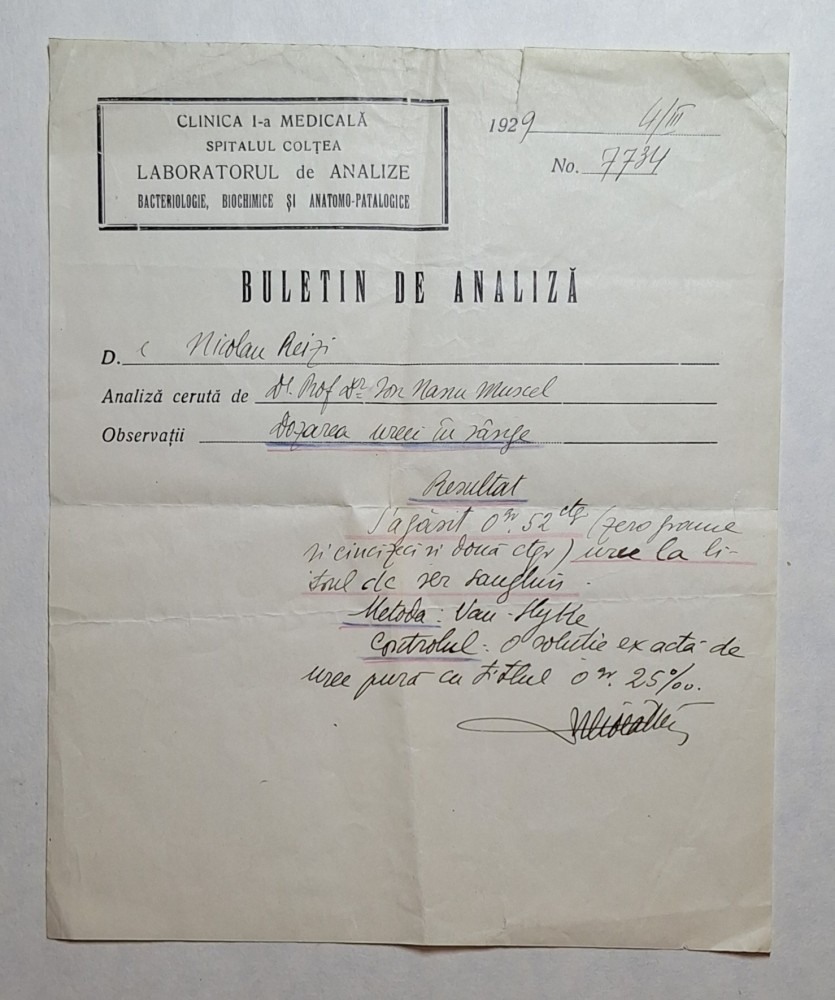 CLINICA I-a MEDICALĂ
SPITALUL COLȚEA
LABORATORUL de ANALIZE
BACTERIOLOGIE, BIOCHIMICE ȘI ANATOMO-PATALOGICE
1929 4/III
No. 7734
BULETIN DE ANALIZĂ
D. Nicolau Reizi
Analiză cerută de Dl. Prof Dr Ion Nanu Muscel
Observații Dozarea ureei în sânge
Resultat
S'a găsit 0 gr. 52 ctgr (zero grame
și cincizeci și două ctgr) uree la li-
trul de ser sanghin.
Metoda: Van-Slyke
Controlul: O soluție exactă de
uree pură cu titlul 0 gr. 25‰.